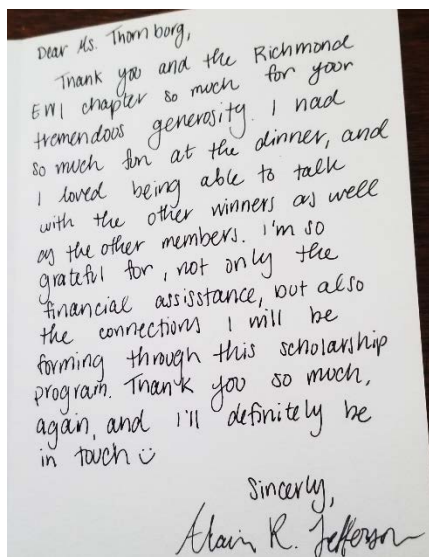 Dear Ms. Thornborg,
Thank you and the Richmond
EWI chapter so much for your
tremendous generosity. I had
so much fun at the dinner, and
I loved being able to talk
with the other winners as well
as the other members. I'm so
grateful for, not only the
financial assisstance, but also
the connections I will be
forming through this scholarship
program. Thank you so much,
again, and I'll definitely be
in touch ☺
Sincerly,
R. Jefferson